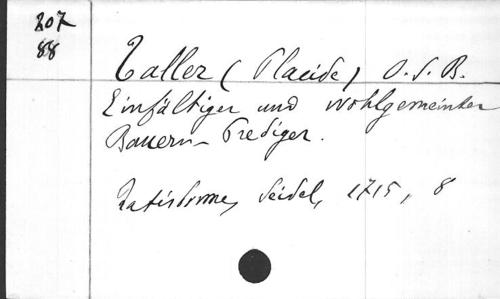 207
88
Taller (Placide) O.S.B.
Einfältiger und wohlgemeinter
Bauern-Prediger.
Ratisbonne, Seidel, 1715, 8